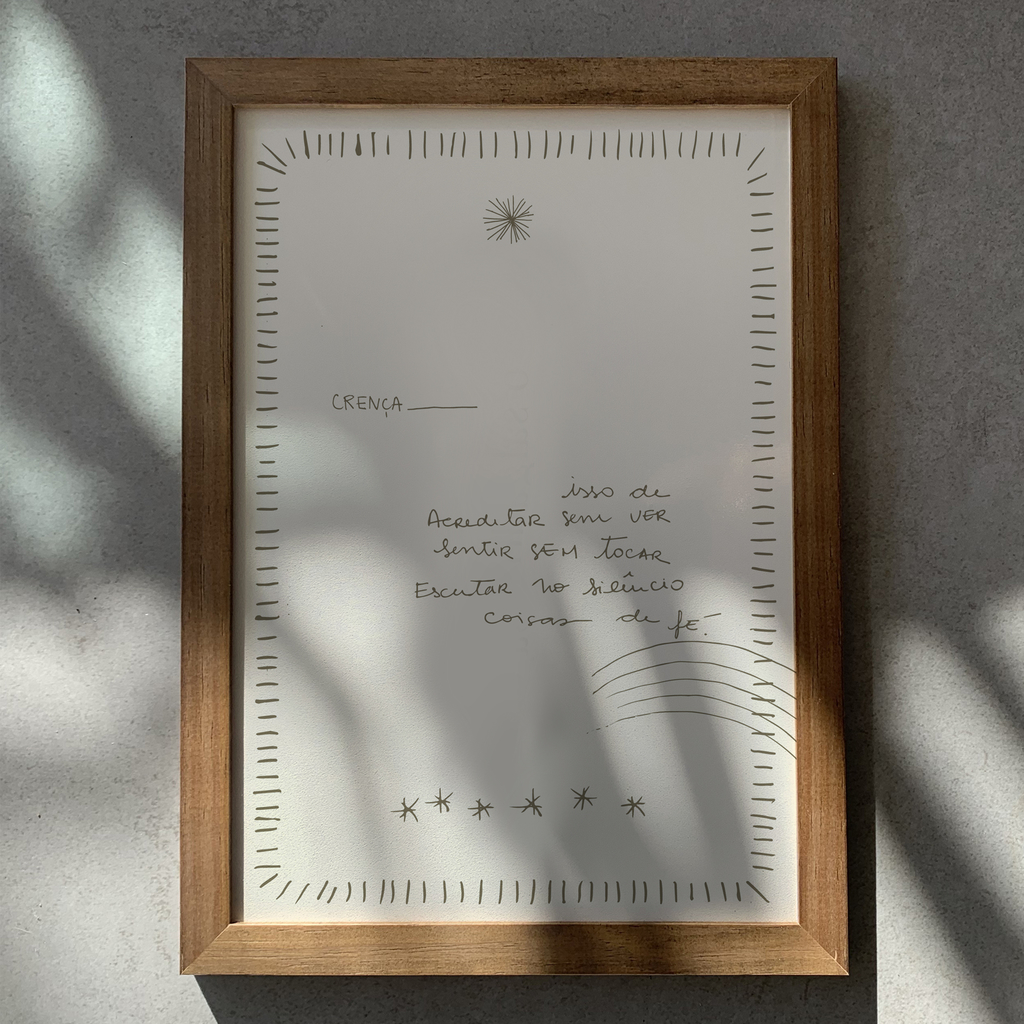 CRENÇA
isso de
Acreditar sem VER
Sentir SEM tocar
Escutar no silêncio
coisas de fé!